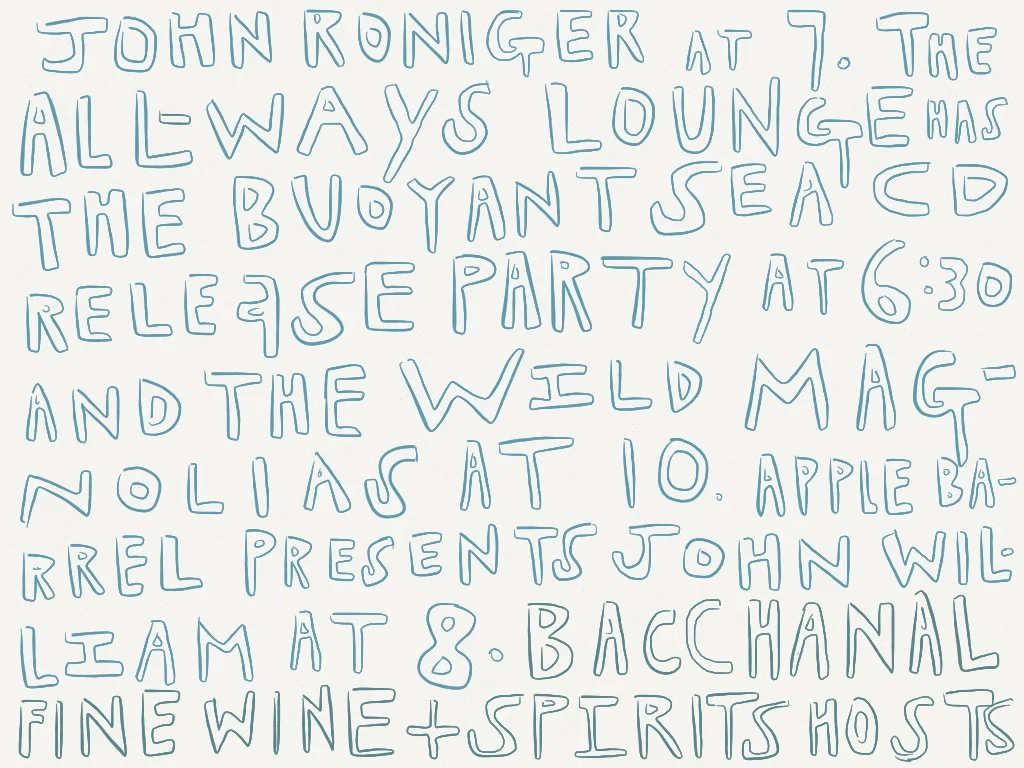 JOHN RONIGER AT 7. THE
ALL-WAYS LOUNGE HAS
THE BUOYANT SEA CD
RELEASE PARTY AT 6:30
AND THE WILD MAG-
NOLIAS AT 10. APPLE BA-
RREL PRESENTS JOHN WIL-
LIAM AT 8. BACCHANAL
FINE WINE + SPIRITS HOSTS